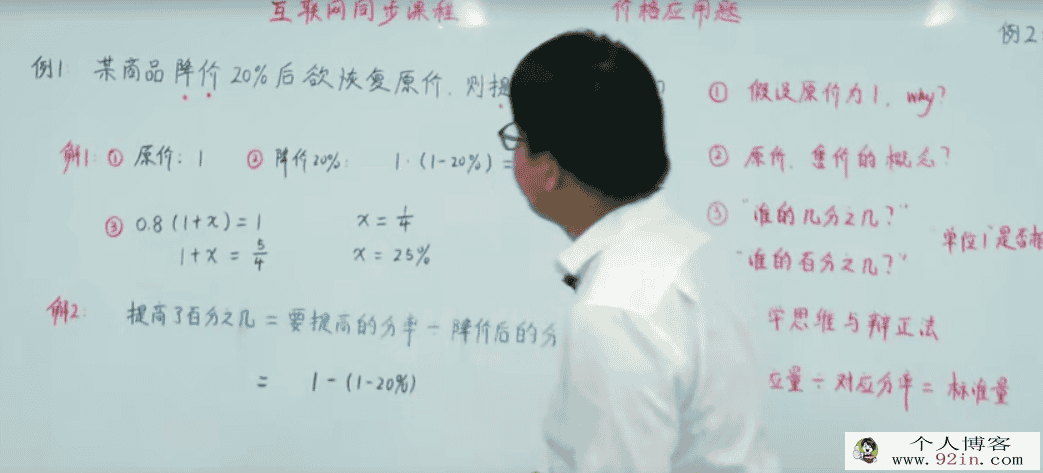 互联网同步课程 价格应用题
例2
例1 某商品降价20%后欲恢复原价.则提
解1: ① 原价: 1 ② 降价20%: 1·(1-20%) =
③ 0.8(1+x)=1 x=1/4
1+x=5/4 x=25%
解2: 提高了百分之几=要提高的分率÷降价后的分
= 1-(1-20%)
① 假设原价为1. why?
② 原价.售价的概念?
③ "谁的几分之几?"
"谁的百分之几?" 单位1是否相
学思维与辩正法
应量÷对应分率=标准量
个人博客
www.92in.com